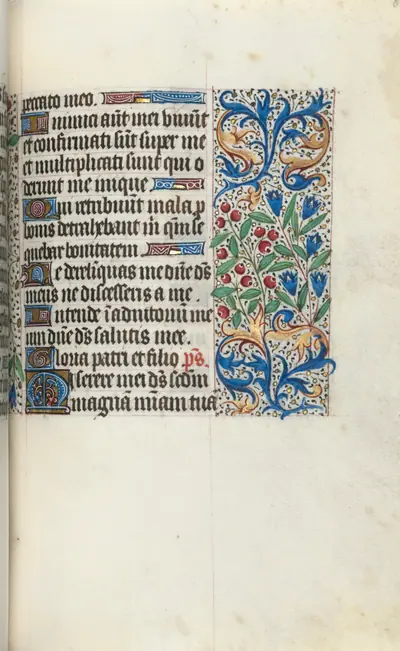 peccato meo.
Inimici aūt mei vivūt
et confirmati sūt super me
et multiplicati sunt qui o
derunt me inique
Qui retribuūt mala p
bonis detrahebant m̄ qm̄ se
quebar bonitatem
Ne derelīquas me dn̄e ds̄
meus ne discesseris a me.
Intende ī adiutoriū me
um dn̄e ds̄ salutis mee.
Gloria patri et filio ps̄.
Miserere mei ds̄ scdm̄
magnā miam̄ tuā